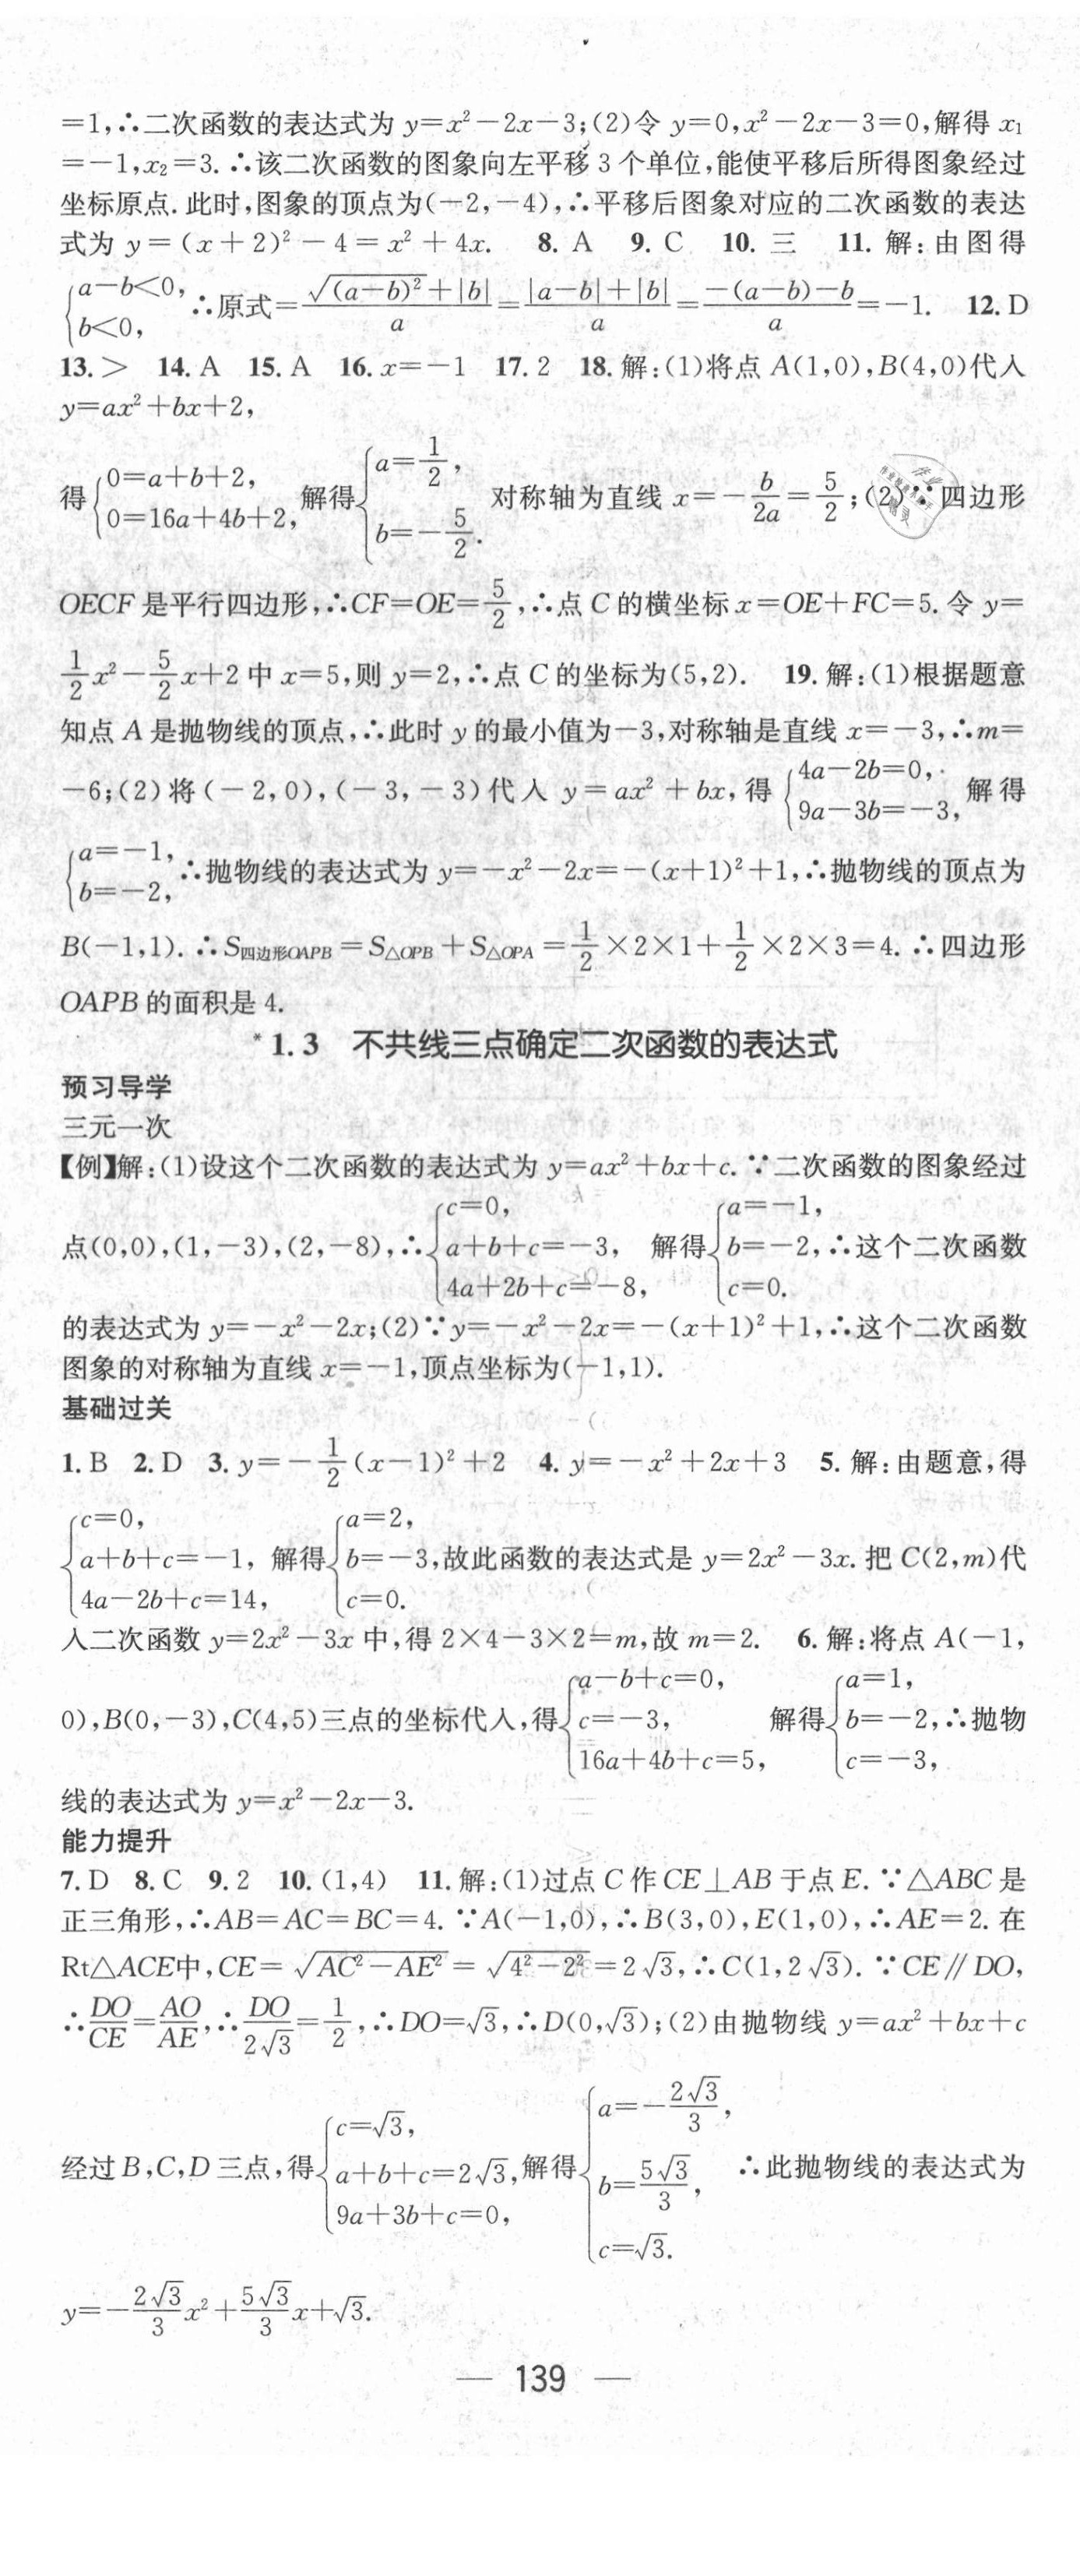 =1,∴二次函数的表达式为 y=x²-2x-3;(2)令 y=0,x²-2x-3=0,解得 x₁
=-1,x₂=3.∴该二次函数的图象向左平移 3 个单位,能使平移后所得图象经过
坐标原点.此时,图象的顶点为(-2,-4),∴平移后图象对应的二次函数的表达
式为 y=(x+2)²-4=x²+4x. 8. A 9. C 10. 三 11. 解:由图得
{a-b<0, b<0, ∴原式=(√((a-b)²)+|b|)/a=(|a-b|+|b|)/a=(-(a-b)-b)/a=-1. 12. D
13. > 14. A 15. A 16. x=-1 17. 2 18. 解:(1)将点 A(1,0),B(4,0)代入
y=ax²+bx+2,
得{0=a+b+2, 0=16a+4b+2, 解得{a=1/2, b=-5/2. 对称轴为直线 x=-b/2a=5/2;(2)∵四边形
OECF 是平行四边形,∴CF=OE=5/2,∴点 C 的横坐标 x=OE+FC=5.令 y=
1/2x²-5/2x+2 中 x=5,则 y=2,∴点 C 的坐标为(5,2). 19. 解:(1)根据题意
知点 A 是抛物线的顶点,∴此时 y 的最小值为-3,对称轴是直线 x=-3,∴m=
-6;(2)将(-2,0),(-3,-3)代入 y=ax²+bx,得{4a-2b=0, 9a-3b=-3, 解得
{a=-1, b=-2, ∴抛物线的表达式为 y=-x²-2x=-(x+1)²+1,∴抛物线的顶点为
B(-1,1).∴S四边形OAPB=S△OPB+S△OPA=1/2×2×1+1/2×2×3=4.∴四边形
OAPB 的面积是 4.
*1.3 不共线三点确定二次函数的表达式
预习导学
三元一次
【例】解:(1)设这个二次函数的表达式为 y=ax²+bx+c.∵二次函数的图象经过
点(0,0),(1,-3),(2,-8),∴{c=0, a+b+c=-3, 4a+2b+c=-8, 解得{a=-1, b=-2, c=0. ∴这个二次函数
的表达式为 y=-x²-2x;(2)∵y=-x²-2x=-(x+1)²+1,∴这个二次函数
图象的对称轴为直线 x=-1,顶点坐标为(-1,1).
基础过关
1. B 2. D 3. y=-1/2(x-1)²+2 4. y=-x²+2x+3 5. 解:由题意,得
{c=0, a+b+c=-1, 4a-2b+c=14, 解得{a=2, b=-3, c=0. 故此函数的表达式是 y=2x²-3x.把 C(2,m)代
入二次函数 y=2x²-3x 中,得 2×4-3×2=m,故 m=2. 6. 解:将点 A(-1,
0),B(0,-3),C(4,5)三点的坐标代入,得{a-b+c=0, c=-3, 16a+4b+c=5, 解得{a=1, b=-2, c=-3, ∴抛物
线的表达式为 y=x²-2x-3.
能力提升
7. D 8. C 9. 2 10. (1,4) 11. 解:(1)过点 C 作 CE⊥AB 于点 E.∵△ABC 是
正三角形,∴AB=AC=BC=4.∵A(-1,0),∴B(3,0),E(1,0),∴AE=2.在
Rt△ACE中,CE=√(AC²-AE²)=√(4²-2²)=2√3,∴C(1,2√3).∵CE∥DO,
∴DO/CE=AO/AE,∴DO/2√3=1/2,∴DO=√3,∴D(0,√3);(2)由抛物线 y=ax²+bx+c
经过 B,C,D 三点,得{c=√3, a+b+c=2√3, 9a+3b+c=0, 解得{a=-2√3/3, b=5√3/3, c=√3. ∴此抛物线的表达式为
y=-2√3/3x²+5√3/3x+√3.
— 139 —